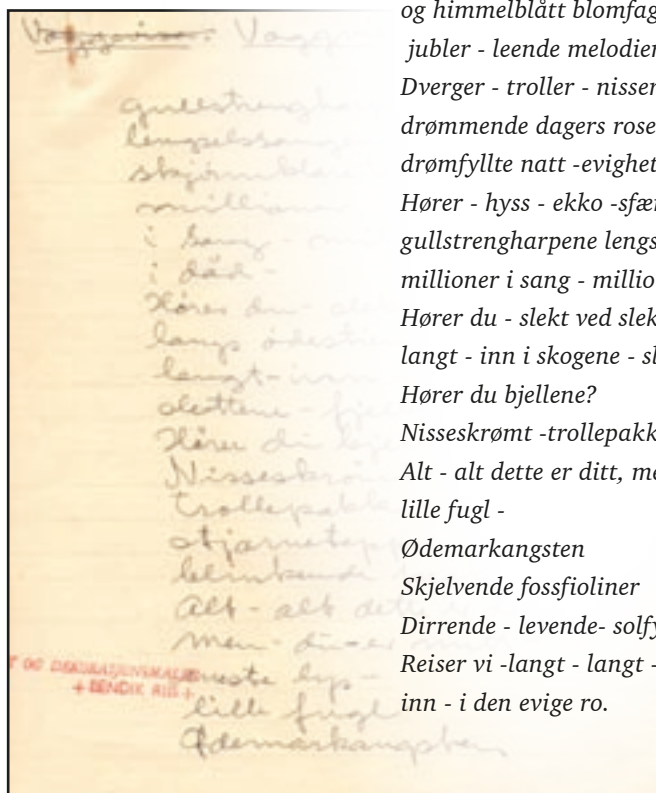 Vaggevise.
gullstrengha
lengselssange
million
i sang -
i dåd -
Hører du -
langt - inn
slettene -
Hører du
Nisseskrøm
trollepakk
blinkende
Alt - alt dette
men - du - er
lille fugl
Ødemarkangsten
+ BENDIK RIIS +
og himmelblått blomfag
jubler - leende melodier
Dverger - troller - nisser
drømmende dagers rose
drømfyllte natt -evighet
Hører - hyss - ekko -sfær
gullstrengharpene lengs
millioner i sang - millio
Hører du - slekt ved slek
langt - inn i skogene - sl
Hører du bjellene?
Nisseskrømt -trollepakk
Alt - alt dette er ditt, me
lille fugl -
Ødemarkangsten
Skjelvende fossfioliner
Dirrende - levende- solfy
Reiser vi -langt - langt -
inn - i den evige ro.